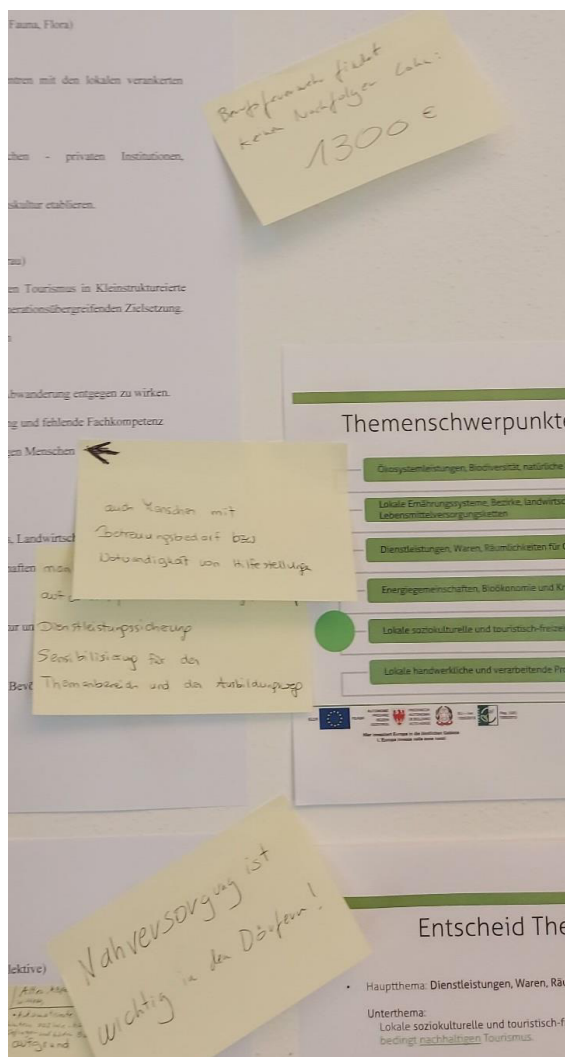 Fauna, Flora)
ntren mit den lokalen verankerten
chen - privaten Institutionen,
skultur etablieren.
rau)
en Tourismus in Kleinstrukturierte
nerationsübergreifenden Zielsetzung.
bwanderung entgegen zu wirken.
ng und fehlende Fachkompetenz
gen Menschen
, Landwirtsch
haften
ur un
Bevö
lektive)
Berufsfeuerwehr findet
keinen Nachfolger Lohn:
1300 €
auch Menschen mit
Betreuungsbedarf bzw
Notwendigkeit von Hilfestellunge
man
auf
Dienstleistungssicherung
Sensibilisierung für den
Themenbereich und den Ausbildungsweg
Themenschwerpunkte
Ökosystemleistungen, Biodiversität, natürliche
Lokale Ernährungssysteme, Bezirke, landwirtsc
Lebensmittelversorgungsketten
Dienstleistungen, Waren, Räumlichkeiten für
Energiegemeinschaften, Bioökonomie und Kr
Lokale soziokulturelle und touristisch-freizei
Lokale handwerkliche und verarbeitende Pro
Hier investiert Europa in die ländlichen Gebiete
L'Europa investe nelle zone rurali
Nahversorgung ist
wichtig in den Dörfern!
Entscheid The
• Hauptthema: Dienstleistungen, Waren, Räu
Unterthema:
Lokale soziokulturelle und touristisch-f
bedingt nachhaltigen Tourismus.
aufgrund